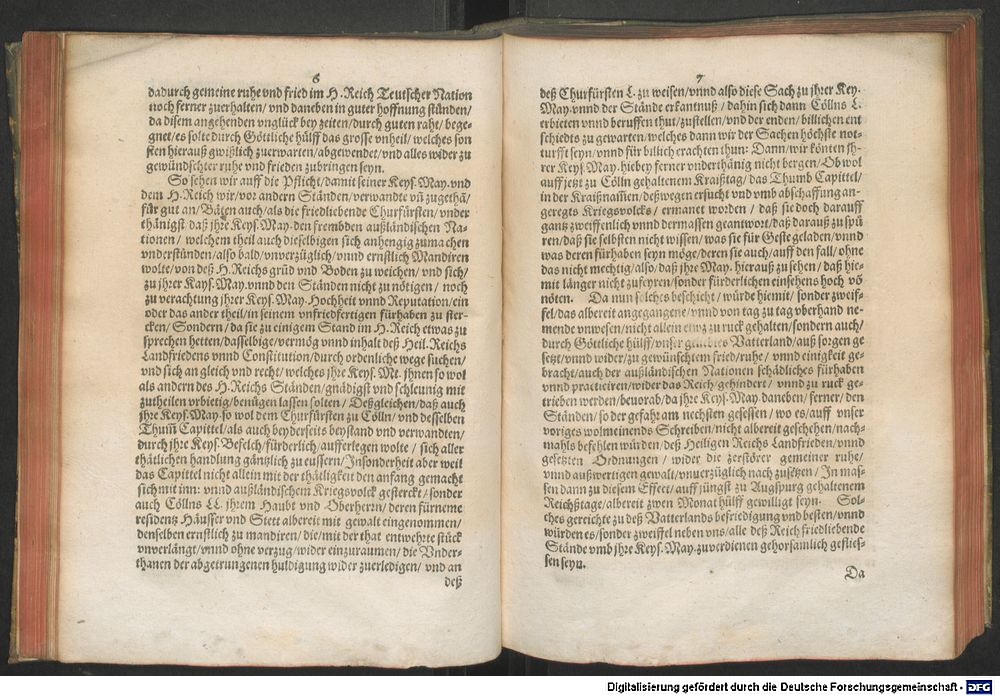 6
dadurch gemeine ruhe vnd fried im H. Reich Teutscher Nation
noch ferner zuerhalten/ vnd daneben in guter hoffnung stünden/
da disem angehenden vnglück bey zeiten/ durch guten raht/ bege-
gnet/ es solte durch Göttliche hülff das grosse vnheil/ welches son
sten hierauß gwißlich zuerwarten/ abgewendet/ vnd alles wider zu
gewündschter ruhe vnd frieden zubringen seyn.
So sehen wir auff die Pflicht/ damit seiner Keys. May. vnd
dem H. Reich wir/ vor andern Ständen/ verwandte vñ zugethã/
für gut an/ Bäten auch/ als die friedliebende Churfürsten/ vnder
thänigst daß jhre Keys. May. den frembden außländischen Na-
tionen/ welchem theil auch dieselbigen sich anhengig zumachen
vnderstünden/ also bald/ vnverzüglich/ vnnd ernstlich Mandiren
wolte/ von deß H. Reichs grũd vnd Boden zu weichen/ vnd sich/
zu jhrer Kays. May. vnnd den Ständen nicht zu nötigen/ noch
zu verachtung jhrer Keys. May. Hochheit vnnd Reputation/ ein
oder das ander theil/ in seinem vnfriedfertigen fürhaben zu ster-
cken/ Sondern/ da sie zu einigem Stand im H. Reich etwas zu
sprechen hetten/ dasselbige/ vermög vnnd inhalt deß Heil. Reichs
Landfriedens vnnd Constitution/ durch ordenliche wege suchen/
vnd sich an gleich vnd recht/ welches jhre Keys. Mt. jhnen so wol
als andern des H. Reichs Ständen/ gnädigst vnd schleunig mit
zutheilen vrbietig/ benügen lassen solten/ Deßgleichen/ daß auch
jhre Keys. May. so wol dem Churfürsten zu Cölln/ vnd desselben
Thum̃ Capittel/ als auch beyderseits beystand vnd verwandten/
durch jhre Key. Befelch/ fürderlich/ aufferlegen wolte/ sich aller
thätlichen handlung gäntzlich zu eussern/ Insonderheit aber weil
das Capittel nicht allein mit der thätligkeit den anfang gemacht
sich mit inn: vnnd außländischem Kriegsvolck gesterckt/ sonder
auch Cöllns LL. jhrem Haubt vnd Oberherrn/ deren fürneme
residentz Häusser vnd Stett albereit mit gewalt eingenommen/
denselben ernstlich zu mandiren/ die/ mit der that entwehrte stück
vnverlängt/ vnnd ohne verzug/ wider einzuraumen/ die Vnder-
thanen der abgetrungenen huldigung wider zuerledigen/ vnd an
deß
7
deß Churfürsten L. zu weisen/ vnnd also diese Sach zu jhrer Key.
May. vnnd der Stände erkantnuß/ dahin sich dann Cöllns L.
erbieten vnnd beruffen thut/ zustellen/ vnd der enden/ billichen ent
schiedts zu gewarten/ welches dann wir der Sachen höchste not-
turfft seyn/ vnnd für billich erachten thun: Dann/ wir könten jh-
rer Keys. May. hiebey ferner vnderthänig nicht bergen/ Ob wol
auff jetzt zu Cölln gehaltenem Kraißtag/ das Thumb Capittel/
in der Kraißnam̃en/ deßwegen ersucht vnd vmb abschaffung an-
geregts Kriegsvolcks/ ermanet worden/ daß sie doch darauff
gantz zweiffenlich vnnd dermassen geantwort/ daß darauß zu spü
ren/ daß sie selbsten nicht wissen/ was sie für Geste geladen/ vnnd
was deren fürhaben seyn möge/ deren sie auch/ auff den fall/ ohne
das nicht mechtig/ also/ daß jhre May. hierauß zu sehen/ daß hie-
mit länger nicht zufeyren/ sonder fürderlichen einsehens hoch vö
nöten. Da nun solches beschicht/ würde hiemit/ sonder zweif-
fel/ das albereit angegangene/ vnnd von tag zu tag vberhand ne-
mende vnwesen/ nicht allein etwz zu ruck gehalten/ sondern auch/
durch Göttliche hülff/ vnser geliebtes Vatterland/ auß sorgen ge
setzt/ vnnd wider/ zu gewünschtem fried/ ruhe/ vnnd einigkeit ge-
bracht/ auch der außländischen Nationen schädliches fürhaben
vnnd practicieren/ wider das Reich/ gehindert/ vnnd zu ruck ge-
trieben werden/ bevorab/ da jhre Keys. May. daneben/ ferner/ den
Ständen/ so der gefahr am nechsten gesessen/ wo es/ auff vnser
voriges wolmeinends Schreiben/ nicht albereit geschehen/ nach-
mahls befehlen würden/ deß Heiligen Reichs Landfrieden/ vnnd
gesetzten Ordnungen/ wider die zerstörer gemeiner ruhe/
vnnd außwertigen gewalt/ vnuerzüglich nach zusetzen/ In maß-
sen dann zu diesem Effect/ auff jüngst zu Augspurg gehaltenem
Reichßtage/ albereit zwen Monat hülff gewilligt seyn. Sol-
ches gereichte zu deß Vatterlands befriedigung vnd besten/ vnnd
würden es/ sonder zweiffel neben vns/ alle deß Reich friedliebende
Stände vmb jhre Keys. May. zuverdienen gehorsamlich geflies-
sen seyn.
Da
Digitalisierung gefördert durch die Deutsche Forschungsgemeinschaft - DFG